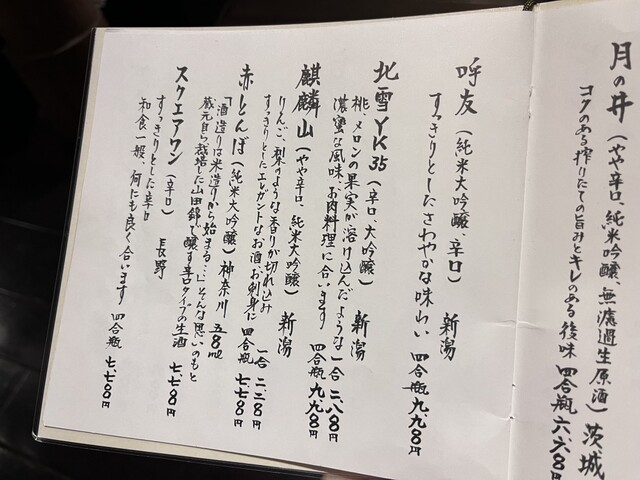 月の井（やや辛口、純米吟醸、無濾過生原酒）茨城
コクのある搾りたての旨みとキレのある後味 四合瓶 六、六〇
呼友（純米大吟醸、辛口）新潟
すっきりとしたさわやかな味わい 四合瓶 九、九〇〇円
北雪YK35（辛口、大吟醸）新潟
桃、メロンの果実が溶け込んだような 一合 二、八〇〇円
濃蜜な風味、お肉料理に合います 四合瓶 九、九〇〇円
麒麟山（やや辛口、純米大吟醸）新潟
りんご、梨のような香りが切れ込み 一合 二、二〇〇円
すっきりとしたエレガントなお酒、お刺身に 四合瓶 七、七〇〇円
赤とんぼ（純米大吟醸）神奈川 五〇〇ml
「酒造りは米造りから始まる…」そんな思いのもと
蔵元自ら栽培した山田錦で醸す辛口タイプの生酒 七、七〇〇円
スクエアワン（辛口）長野
すっきりとした辛口
和食一般、何にも良く合います 四合瓶 七、七〇〇円